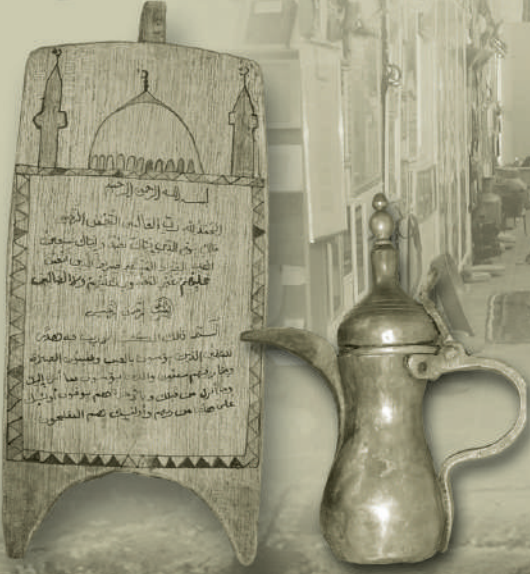 بسم الله الرحمن الرحيم
الحمد لله رب العالمين الرحمن الرحيم
مالك يوم الدين إياك نعبد وإياك نستعين
اهدنا الصراط المستقيم صراط الذين أنعمت
عليهم غير المغضوب عليهم ولا الضالين
بسم الله الرحمن الرحيم
الم ذلك الكتاب لا ريب فيه هدى
للمتقين الذين يؤمنون بالغيب ويقيمون الصلاة
ومما رزقناهم ينفقون والذين يؤمنون بما أنزل إليك
وما أنزل من قبلك وبالآخرة هم يوقنون أولئك
على هدى من ربهم وأولئك هم المفلحون